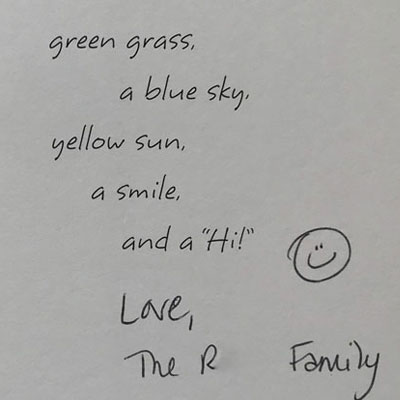 green grass,
a blue sky,
yellow sun,
a smile,
and a "Hi!"
Love,
The R Family